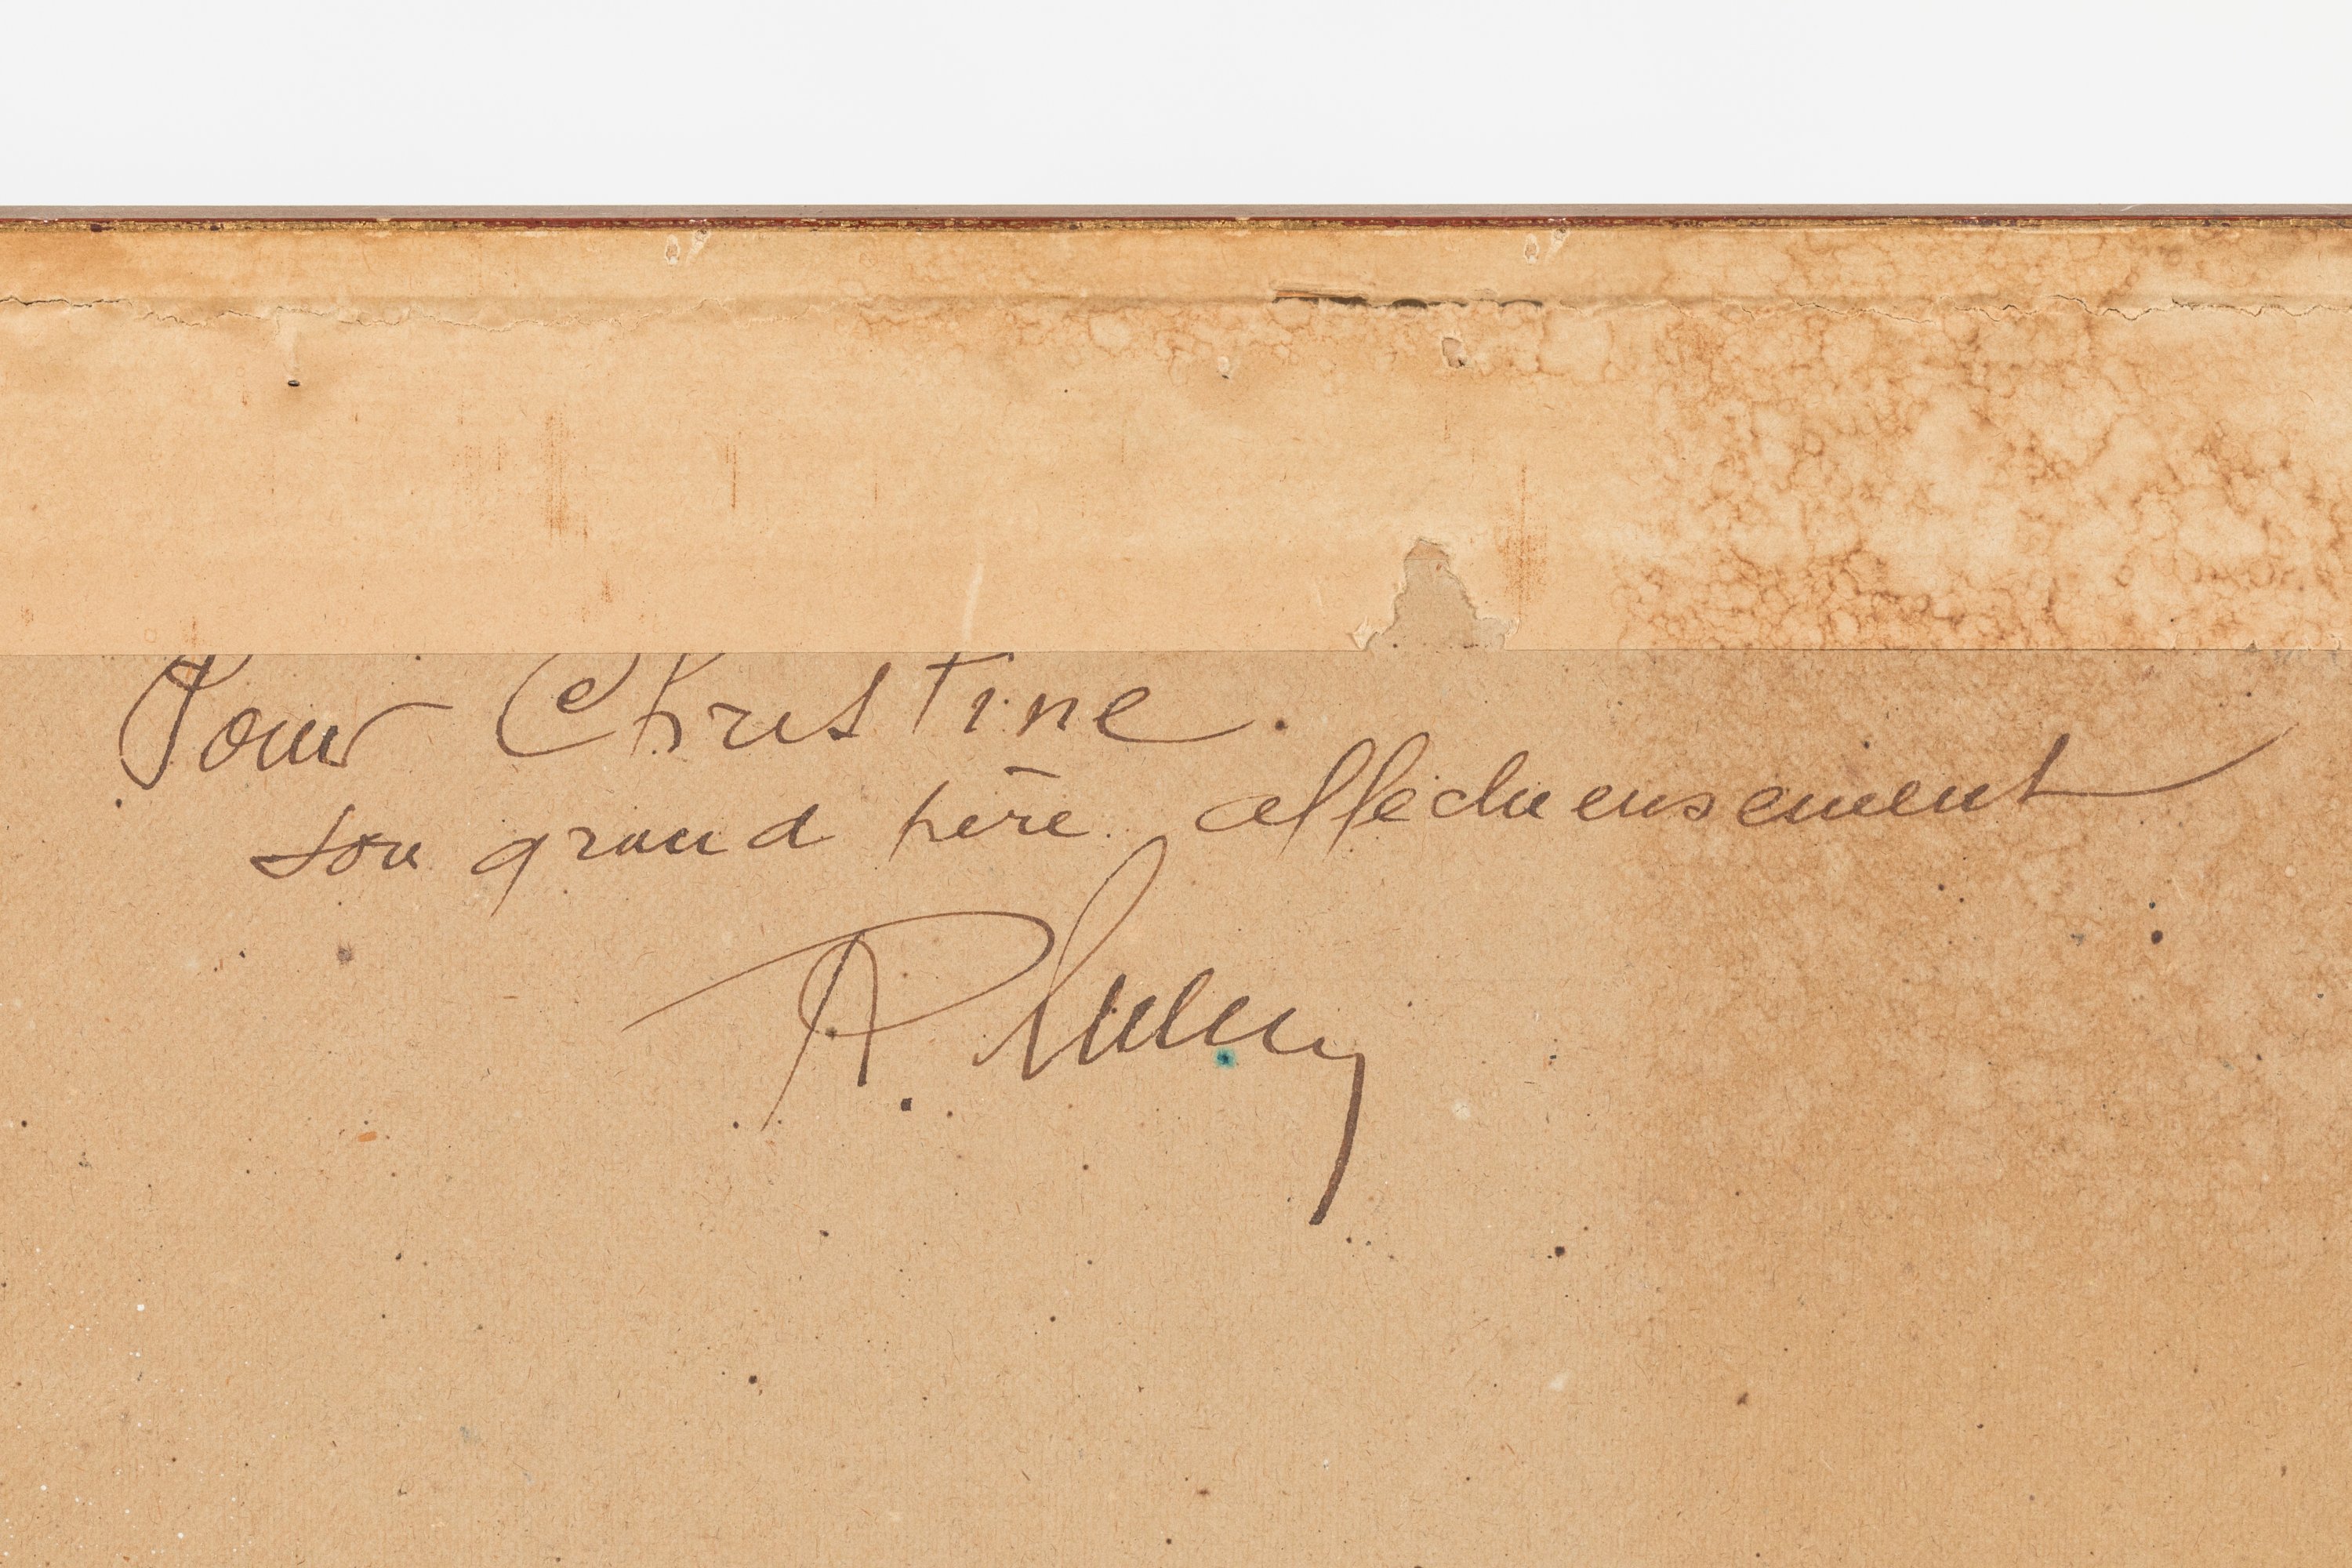 Pour Christine.
son grand père affectueusement